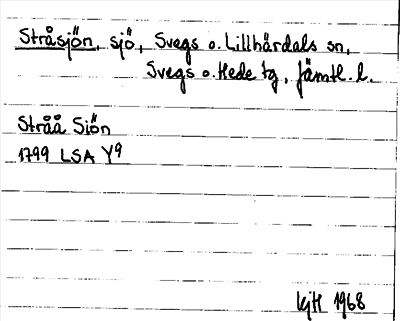 Stråsjön, sjö, Svegs o. Lillhärdals sn,
Svegs o. Hede tg, Jämtl. l.
Stråå Siön
1799 LSA Y9
kjH 1968